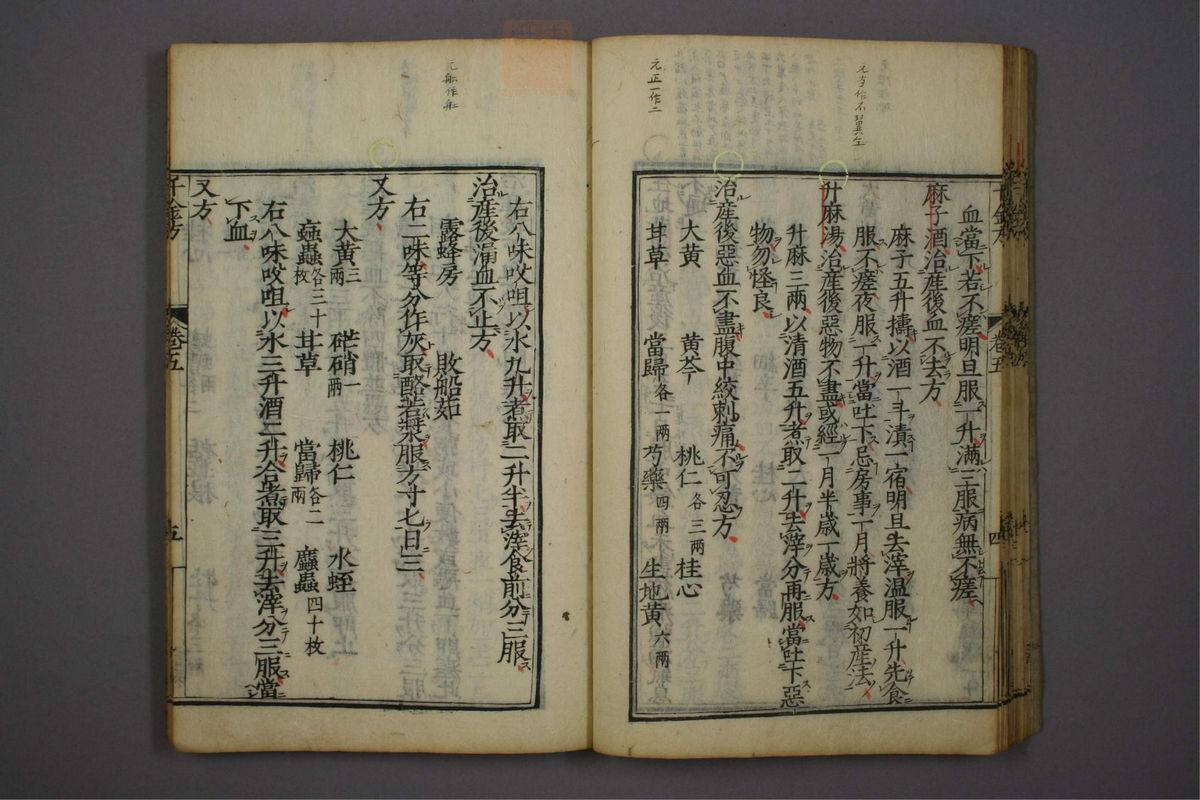 元方作不翼亽
元正一作二
血當下若不瘥明旦服一升滿三服病無不瘥
麻子酒治産後血不去方
麻子五升擣以酒一斗漬一宿明旦去滓溫服一升先食
服不瘥夜服一升當吐下忌房事一月將養如初産法
升麻湯治産後惡物不盡或經一月半歲一歲方
升麻三兩以清酒五升煮取二升去滓分再服當吐下惡
物勿怪良
治産後惡血不盡腹中絞刺痛不可忍方
大黃 黃芩 桃仁各三兩 桂心
甘草 當歸各一兩 芍藥四兩 生地黃六兩
卷五
四
右八味㕮咀以水九升煮取二升半去滓食前分三服
治産後漏血不止方
露蜂房 敗船茹
右二味等分作灰取酪若漿服方寸匕日三
又方
大黃三兩 芒硝一兩 桃仁 水蛭
蝱蟲各三十枚 甘草 當歸各二兩 䗪蟲四十枚
右八味㕮咀以水三升酒二升合煮取三升去滓分三服當
下血
又方
千金方
卷五
五